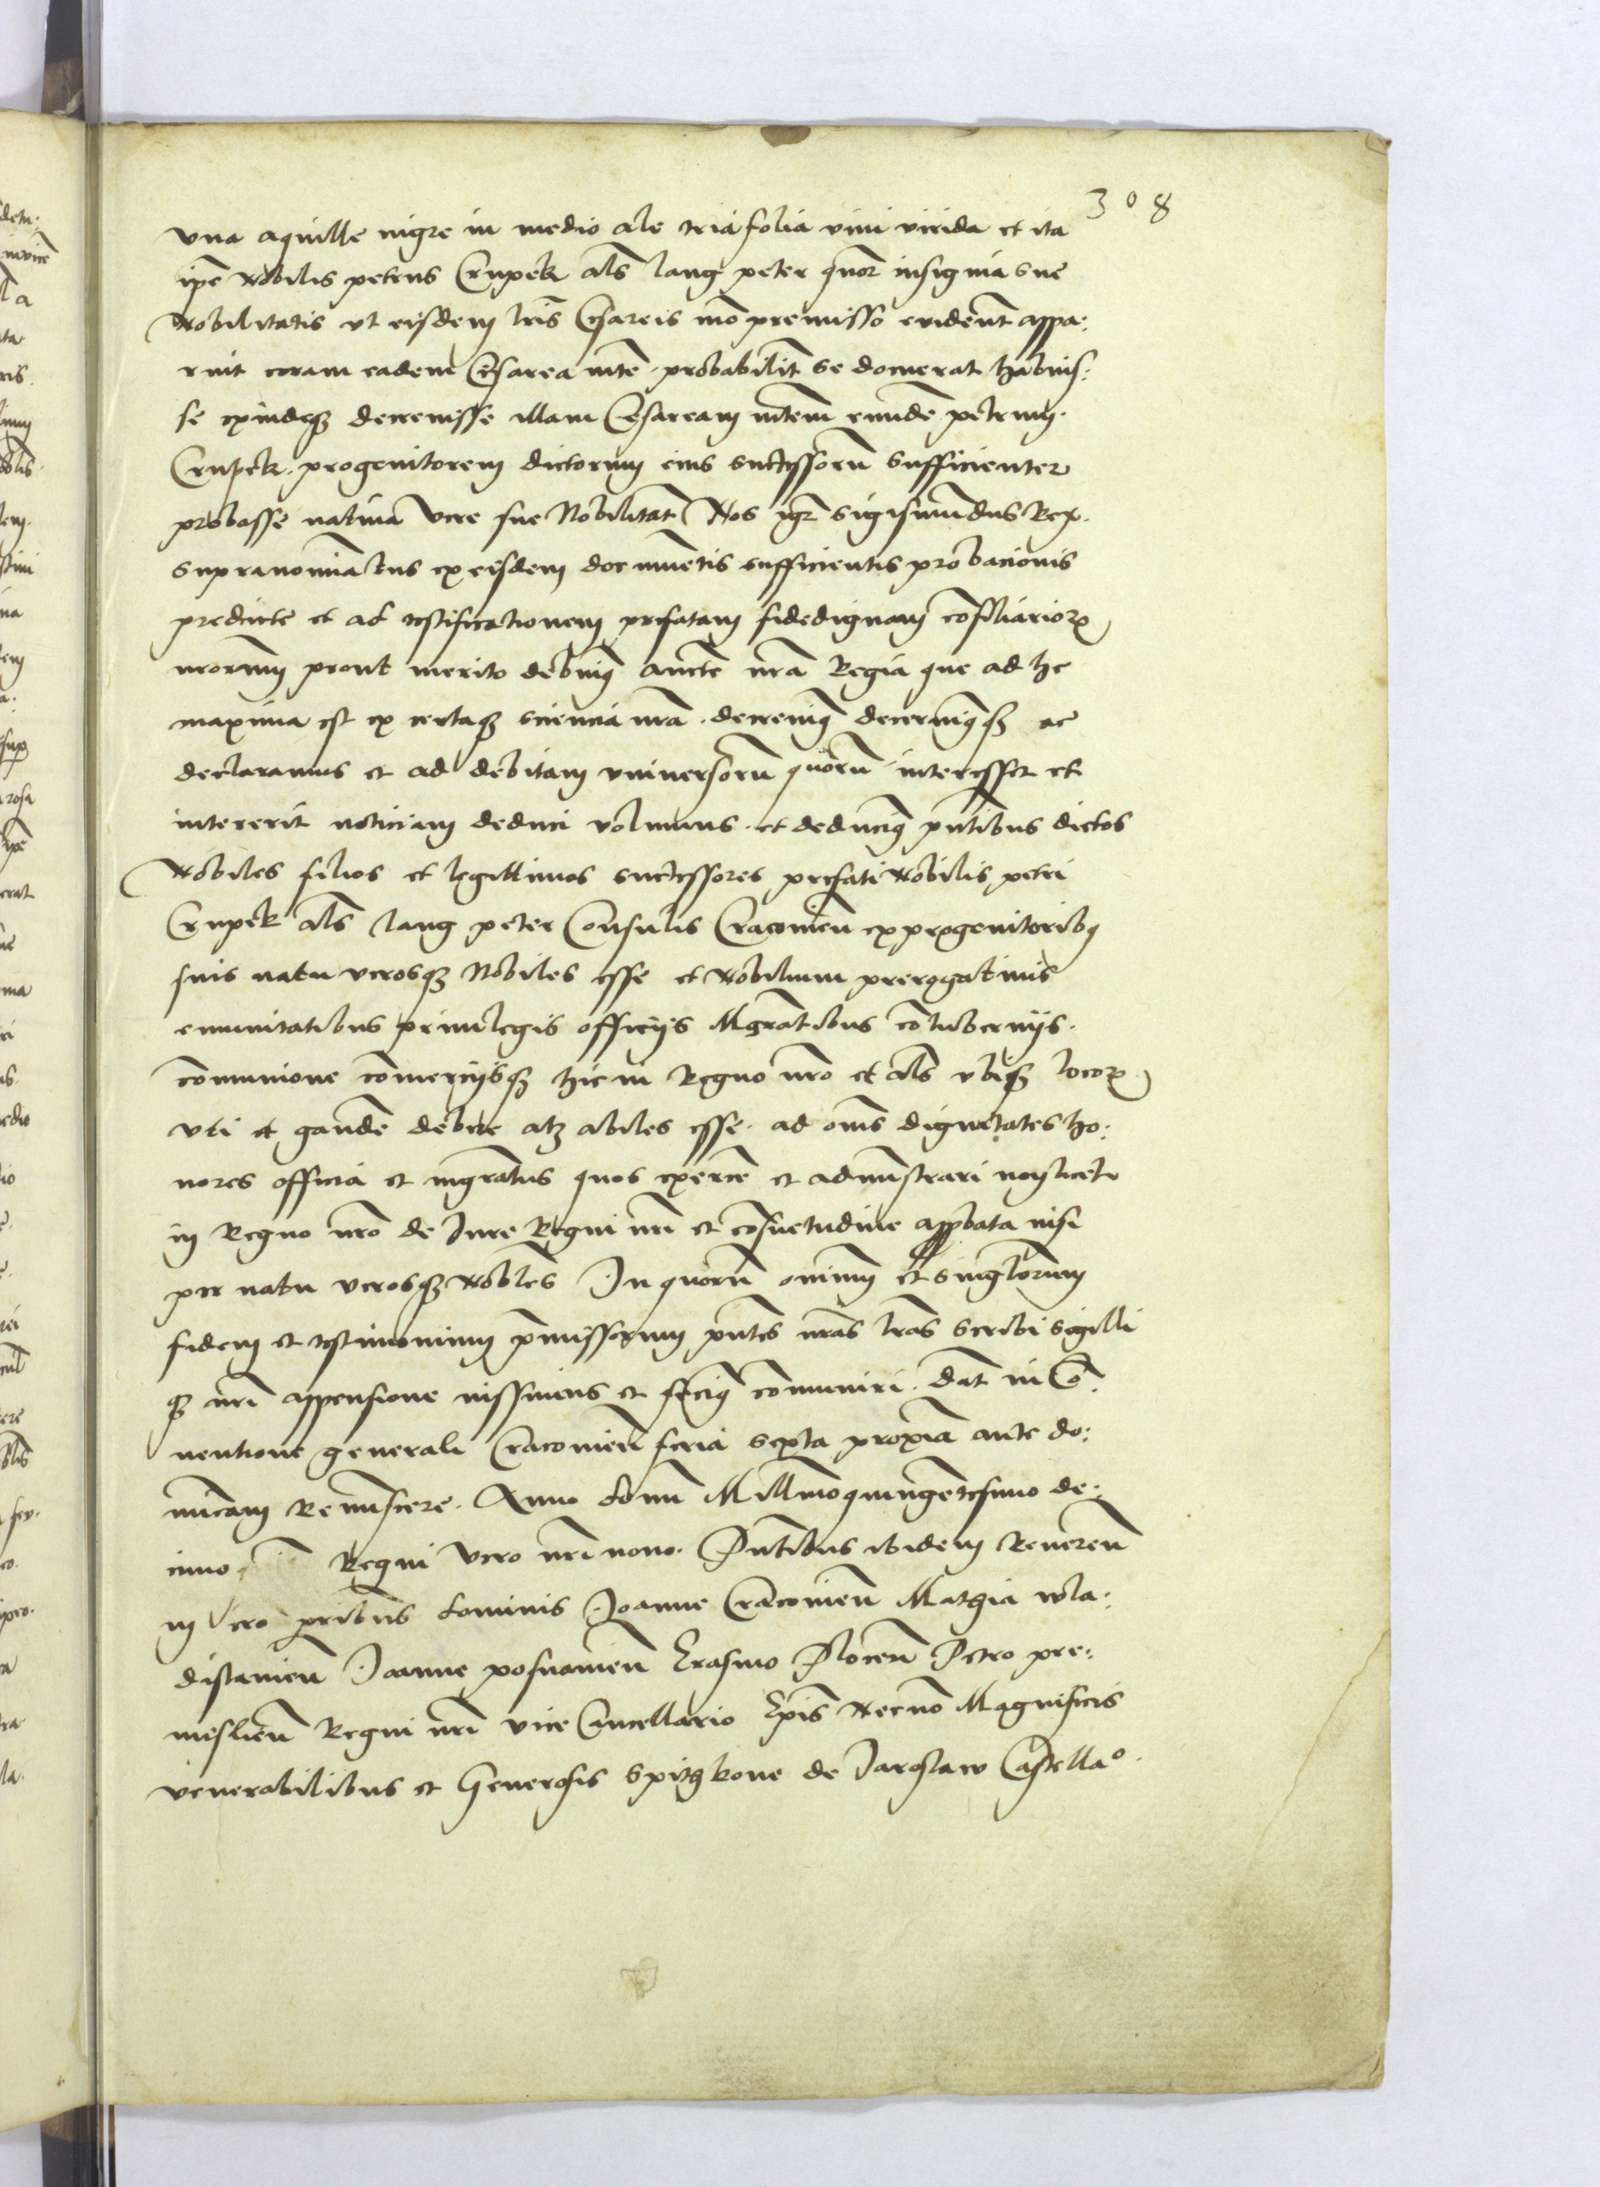 308
vna aquille nigre in medio ale tria folia vini virida et ita
ipe Nobilis petrus Crupek als lang peter quor insignia sue
Nobilitatis vt eisdem lris Cesareis mo premisso evident appa:
ruit coram eadem Cesarea mte probabilit se docuerat habuis:
se exindeq decrevisse illam Cesaream mtem eunde petrum
Crupek progenitorem dictorum eius successoru sufficienter
probasse nativa vere sue Nobilitat Nos igr Sigismundus Rex
supranominatus ex eisdem documetis sufficientis probacionis
predicte et ad testificationem prefatam fidedignam cosiliarior
nrorum prout merito debuim aucte nra Regia que ad hc
maxima est ex certaq sciencia nra decrevim decernimq ac
declaramus et ad debitam vniversoru quoru interesset et
intererit noticiam deduci volumus et deducim pntibus dictos
Nobiles filios et legittimos successores prefati Nobilis petri
Crupek als lang peter Consulis Cracovien ex progenitorib
suis natu verosq Nobiles esse et Nobilium prerogativis
emunitatibus privilegiis officiis Mgratibus cotuberniis
comunione comerciisq hic in Regno nro et als vbiq locor
vti et gaude debere atq abiles esse ad oms dignitates ho:
nores officia et mgratus quos exerce et administrari non licet
in Regno nro de Iure Regni nri et cosuetudine appbata nisi
per natu verosq Nobles In quoru omnium et singlorum
fidem et testimonium pmissorum pntes nras lras scribi sigilli
q nri appensione iussimus et fecim comuniri Dat in Co:
nentione generali Cracovien feria sexta proxia ante do:
nicam Reminiscere Anno domi Millmoquingetesimo de:
cimo Regni vero nri nono Pntibus ibidem Reveren
in Cro pribus dominis Joanne Cracovien Mathia wla:
dislavien Joanne posnanien Erasmo Plocen Petro pre:
mislien Regni nri vice Cancellario Epis Necno Magnificis
venerabilibus et Generosis Spithkone de Jaroslaw Castellao